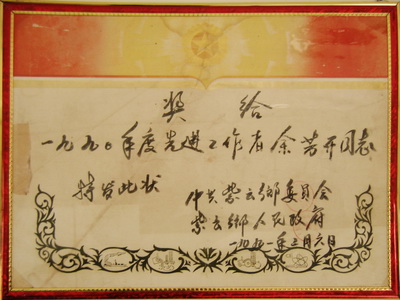 奖给
一九九〇年度先进工作者余芳开同志
特发此状
中共紫云乡委员会
紫云乡人民政府
一九九一年三月六日